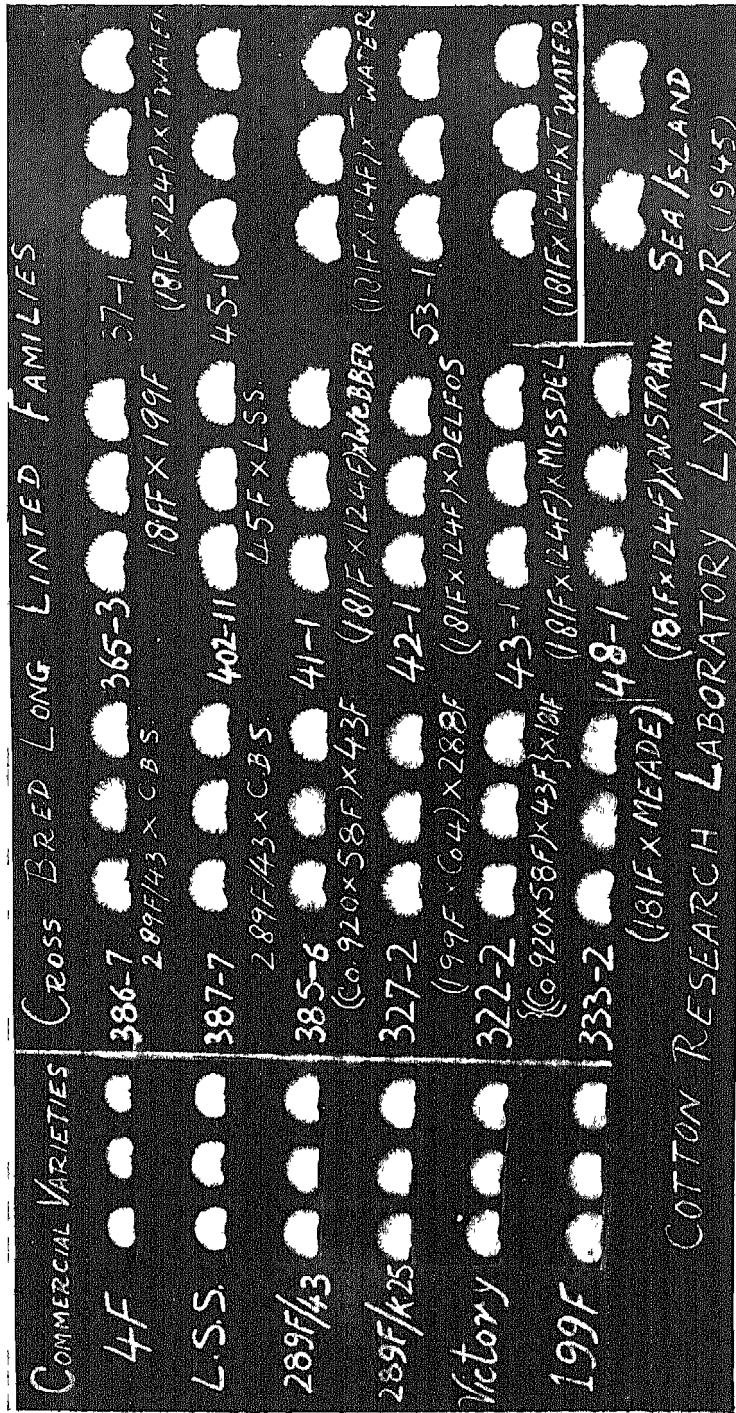 COMMERCIAL VARIETIES
CROSS BRED LONG LINTED FAMILIES
4F
386-7
365-3
37-1
289F/43 × C.B.S.
181F × 199F
(181F×124F)×T WATER
L.S.S.
387-7
402-11
45-1
289F/43 × C.B.S.
45F × L.S.S.
289F/43
385-6
41-1
(Co.920×58F)×43F
(181F×124F)×WEBBER
(181F×124F)×T WATER
289F/K25
327-2
42-1
53-1
(199F × Co4)×288F
(181F×124F)×DELFOS
Victory
322-2
43-1
{(Co.920×58F)×43F}×181F
(181F×124F)×MISSDEL
(181F×124F)×T WATER
199F
333-2
48-1
(181F×MEADE)
(181F×124F)×W.STRAIN
SEA ISLAND
COTTON RESEARCH LABORATORY LYALLPUR (1945)